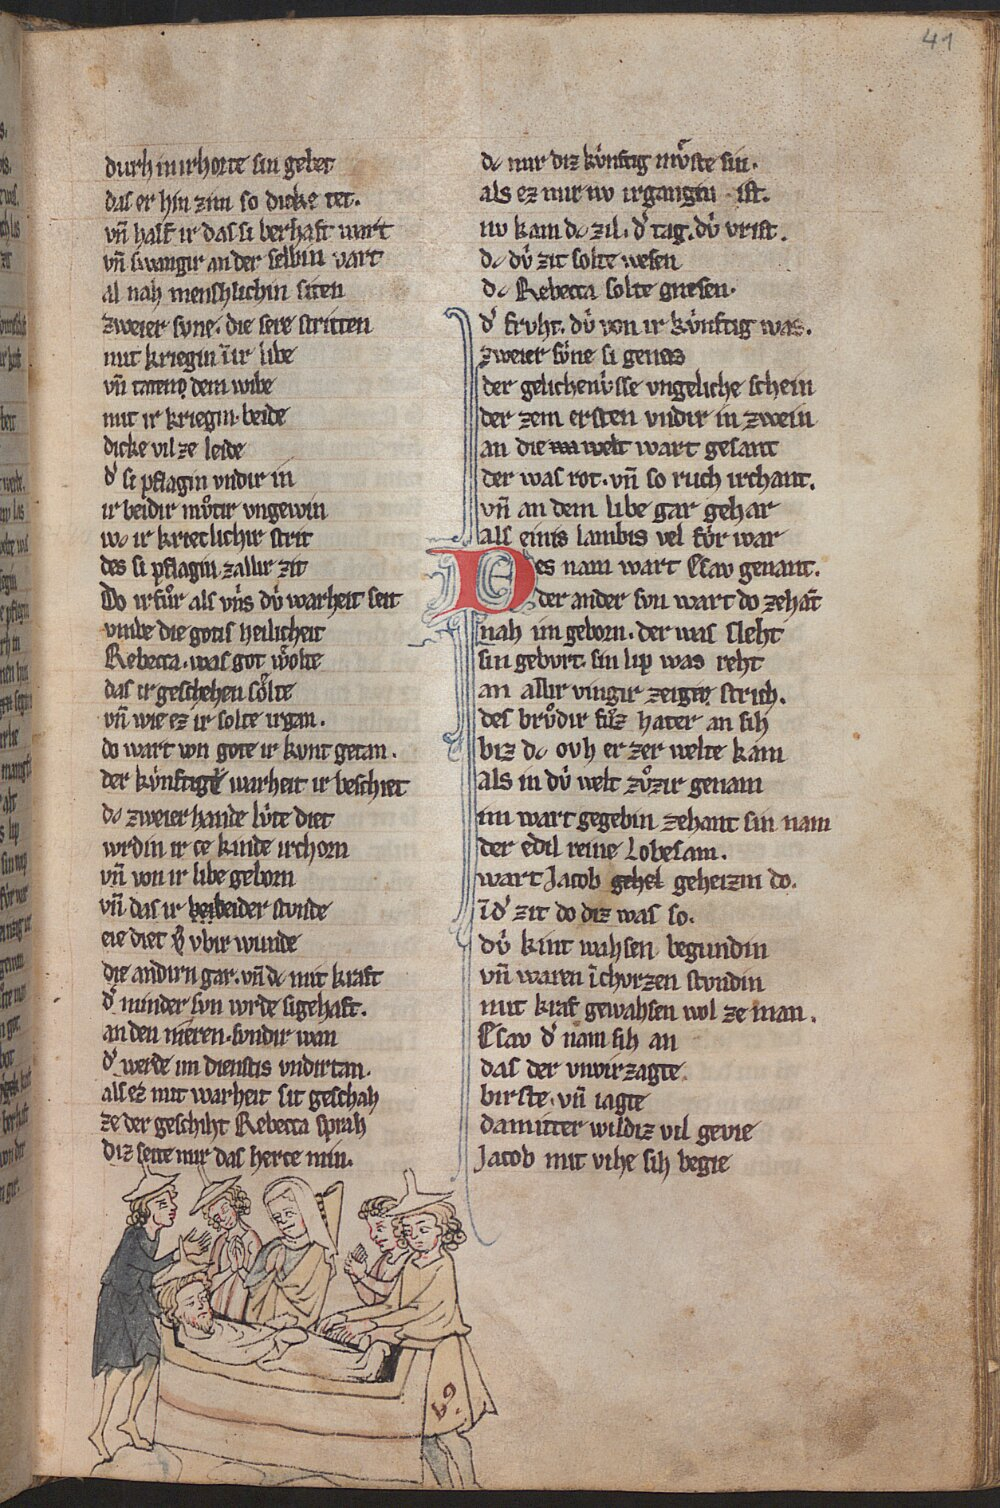 41
durh in irhorte sin gebet
das er hin zim so dicke tet.
vn̄ half ir das si berhaft wart
vn̄ swangir an der selbin vart
al nah menshlichin siten
zweier svne. die sere stritten
mit kriegin ī ir libe
vn̄ taten dem wibe
mit ir kriegin. beide
dicke vil ze leide
d͛ si pflagin vndir in
ir beidir mv̊tir vngewin
wc ir krieclichir strit
des si pflagin zallir zit
Do irfůr als vn̄s dv́ warheit seit
vmbe die gotis heilicheit
Rebecca. was got wolte
das ir geschehen sőlte
vn̄ wie ez ir solte irgan.
do wart von gote ir kvnt getan.
der kv́nftige warheit ir beschiet
dc zweier hande lv́te diet
wrdin ir ce kinde irchorn
vn̄ von ir libe geborn
vn̄ das ir beider svnde
eie diet vbir wunde
die andirn gar. vn̄ dc mit kraft
d͛ minder svn wrde sigehaft.
an den meren. svndir wan
d͛ werde im dienstis vndirtan.
als ez mit warheit sit geschah
ze der geschiht Rebecca sprah
diz seite mir das herce min.
dc mir diz kv́nftig mv̊ste sin.
als ez mir nv irgangin ist.
nv kam dc zil. d͛ tag. dv́ vrist.
dc dv́ zit solte wesen
dc Rebecca solte gnesen.
d͛ frvht. dv́ von ir kv́nftig was.
zweier sv́ne si genas
der gelichenv́sse vngeliche schein
der zem ersten vndir in zwein
an die welt wart gesant
der was rot. vn̄ so ruch irchant.
vn̄ an dem libe gar gehar
als einis lambis vel fv́r war
Des nam wart Esav genant.
der ander svn wart do zehāt
nah im geborn. der was sleht
sin gebvrt. sin lip was reht
an allir vingir zeigin strich.
des brv̊dir fůz hater an sih
biz dc ovh er zer welte kam
als in dv́ welt zv̊zir genam
im wart gegebin zehant sin nam
der edil reine lobesam.
wart Jacob gehel geheizin do.
ī d͛ zit do diz was so.
dv́ kint wahsen begundin
vn̄ waren ī chvrzen stvndin
mit kraf gewahsen wol ze man.
Esav d͛ nam sih an
das der vnvirzagte
birste. vn̄ iagte
damitter wildiz vil gevie
Jacob mit vihe sih begie